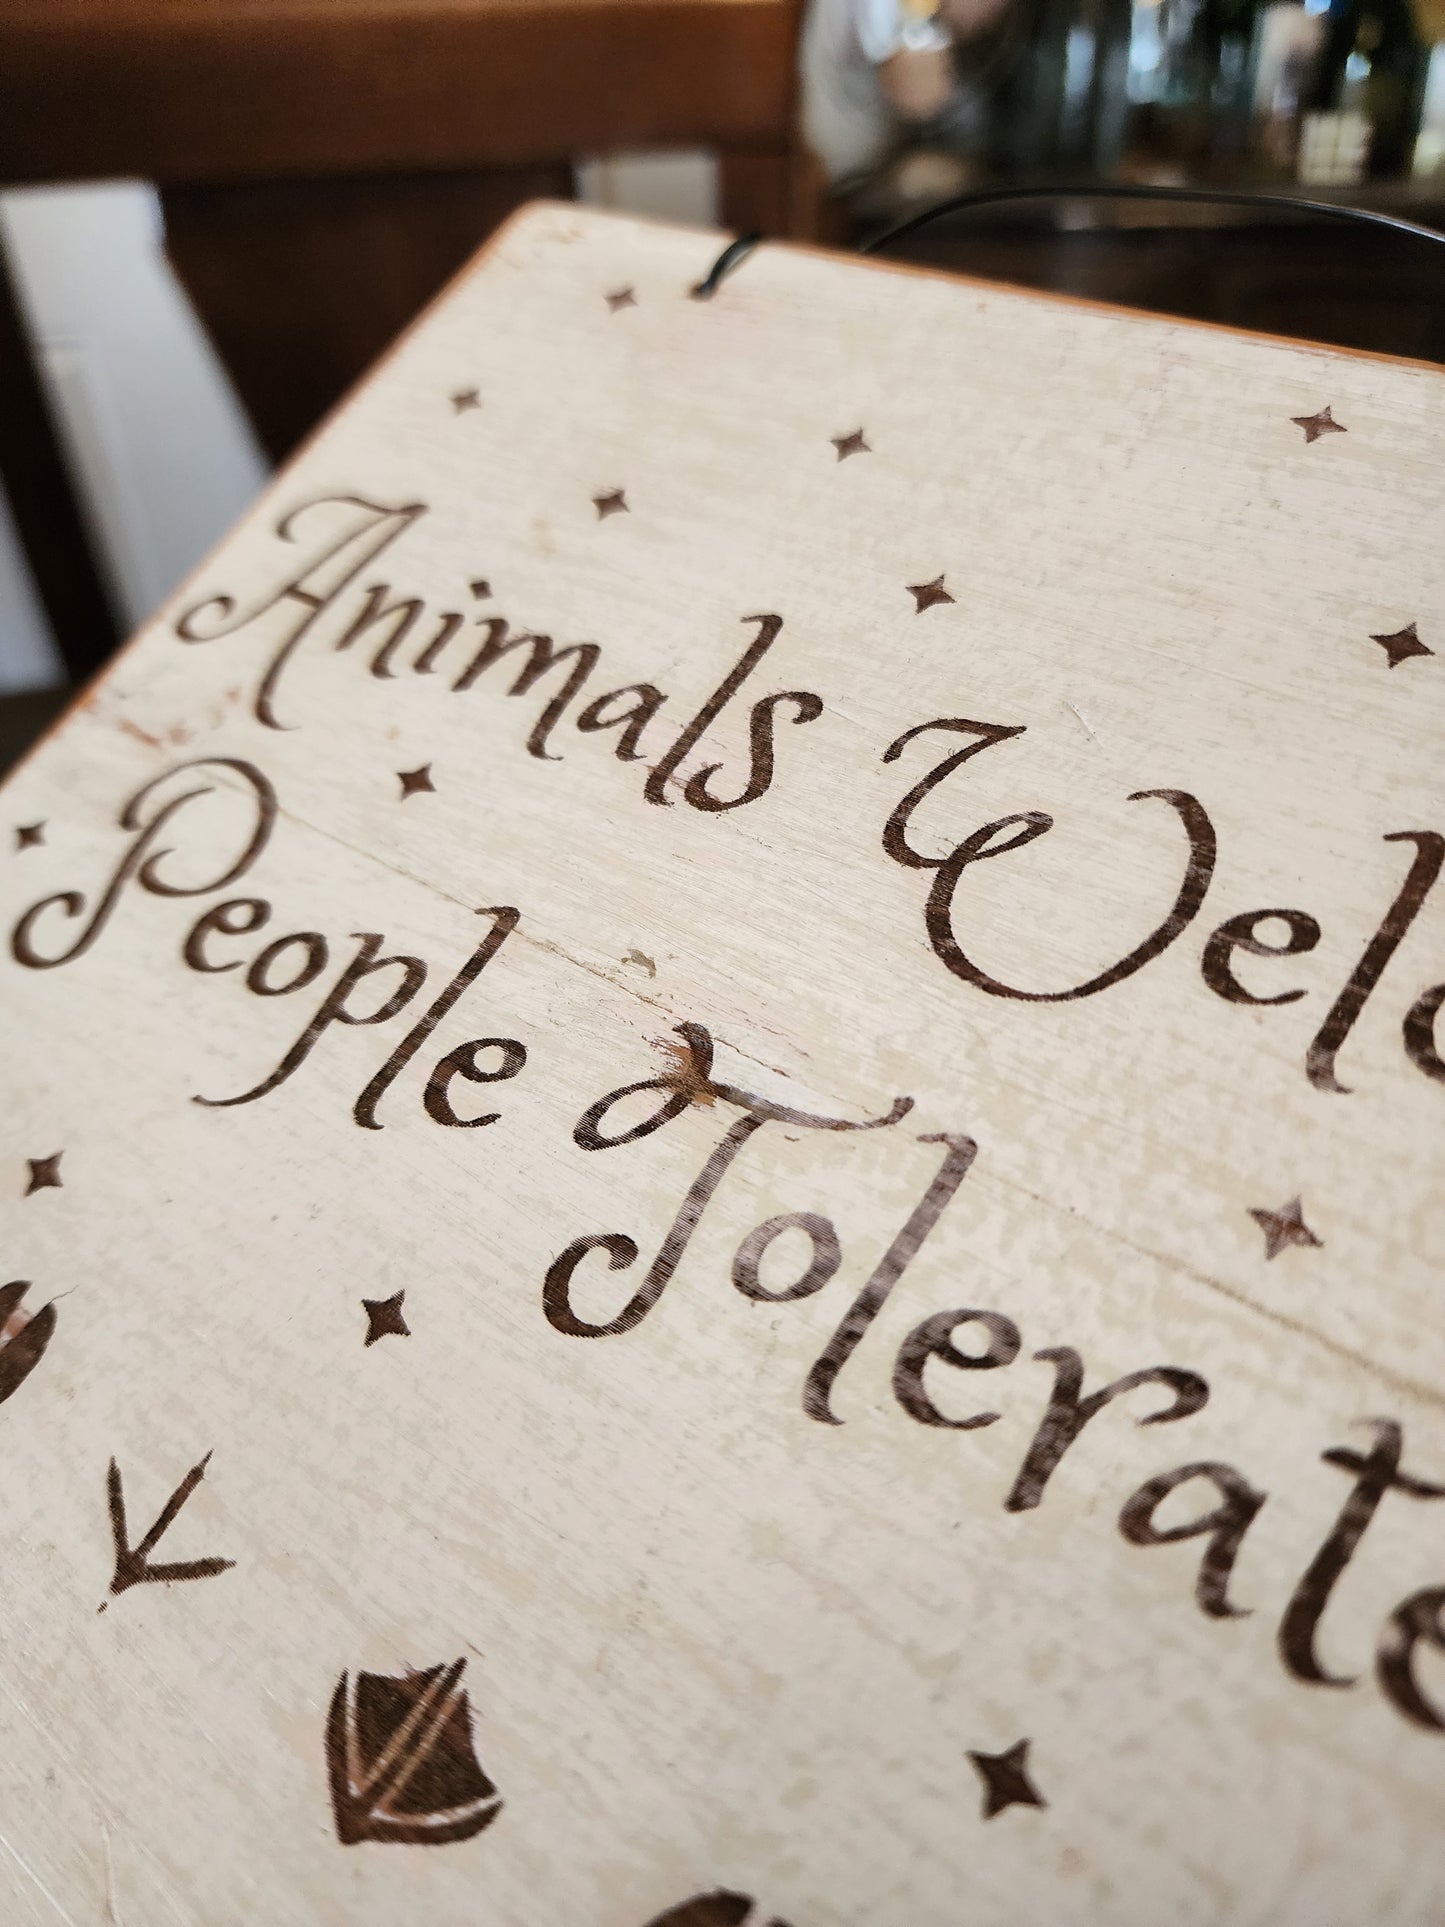 Animals Welc
People Tolerate